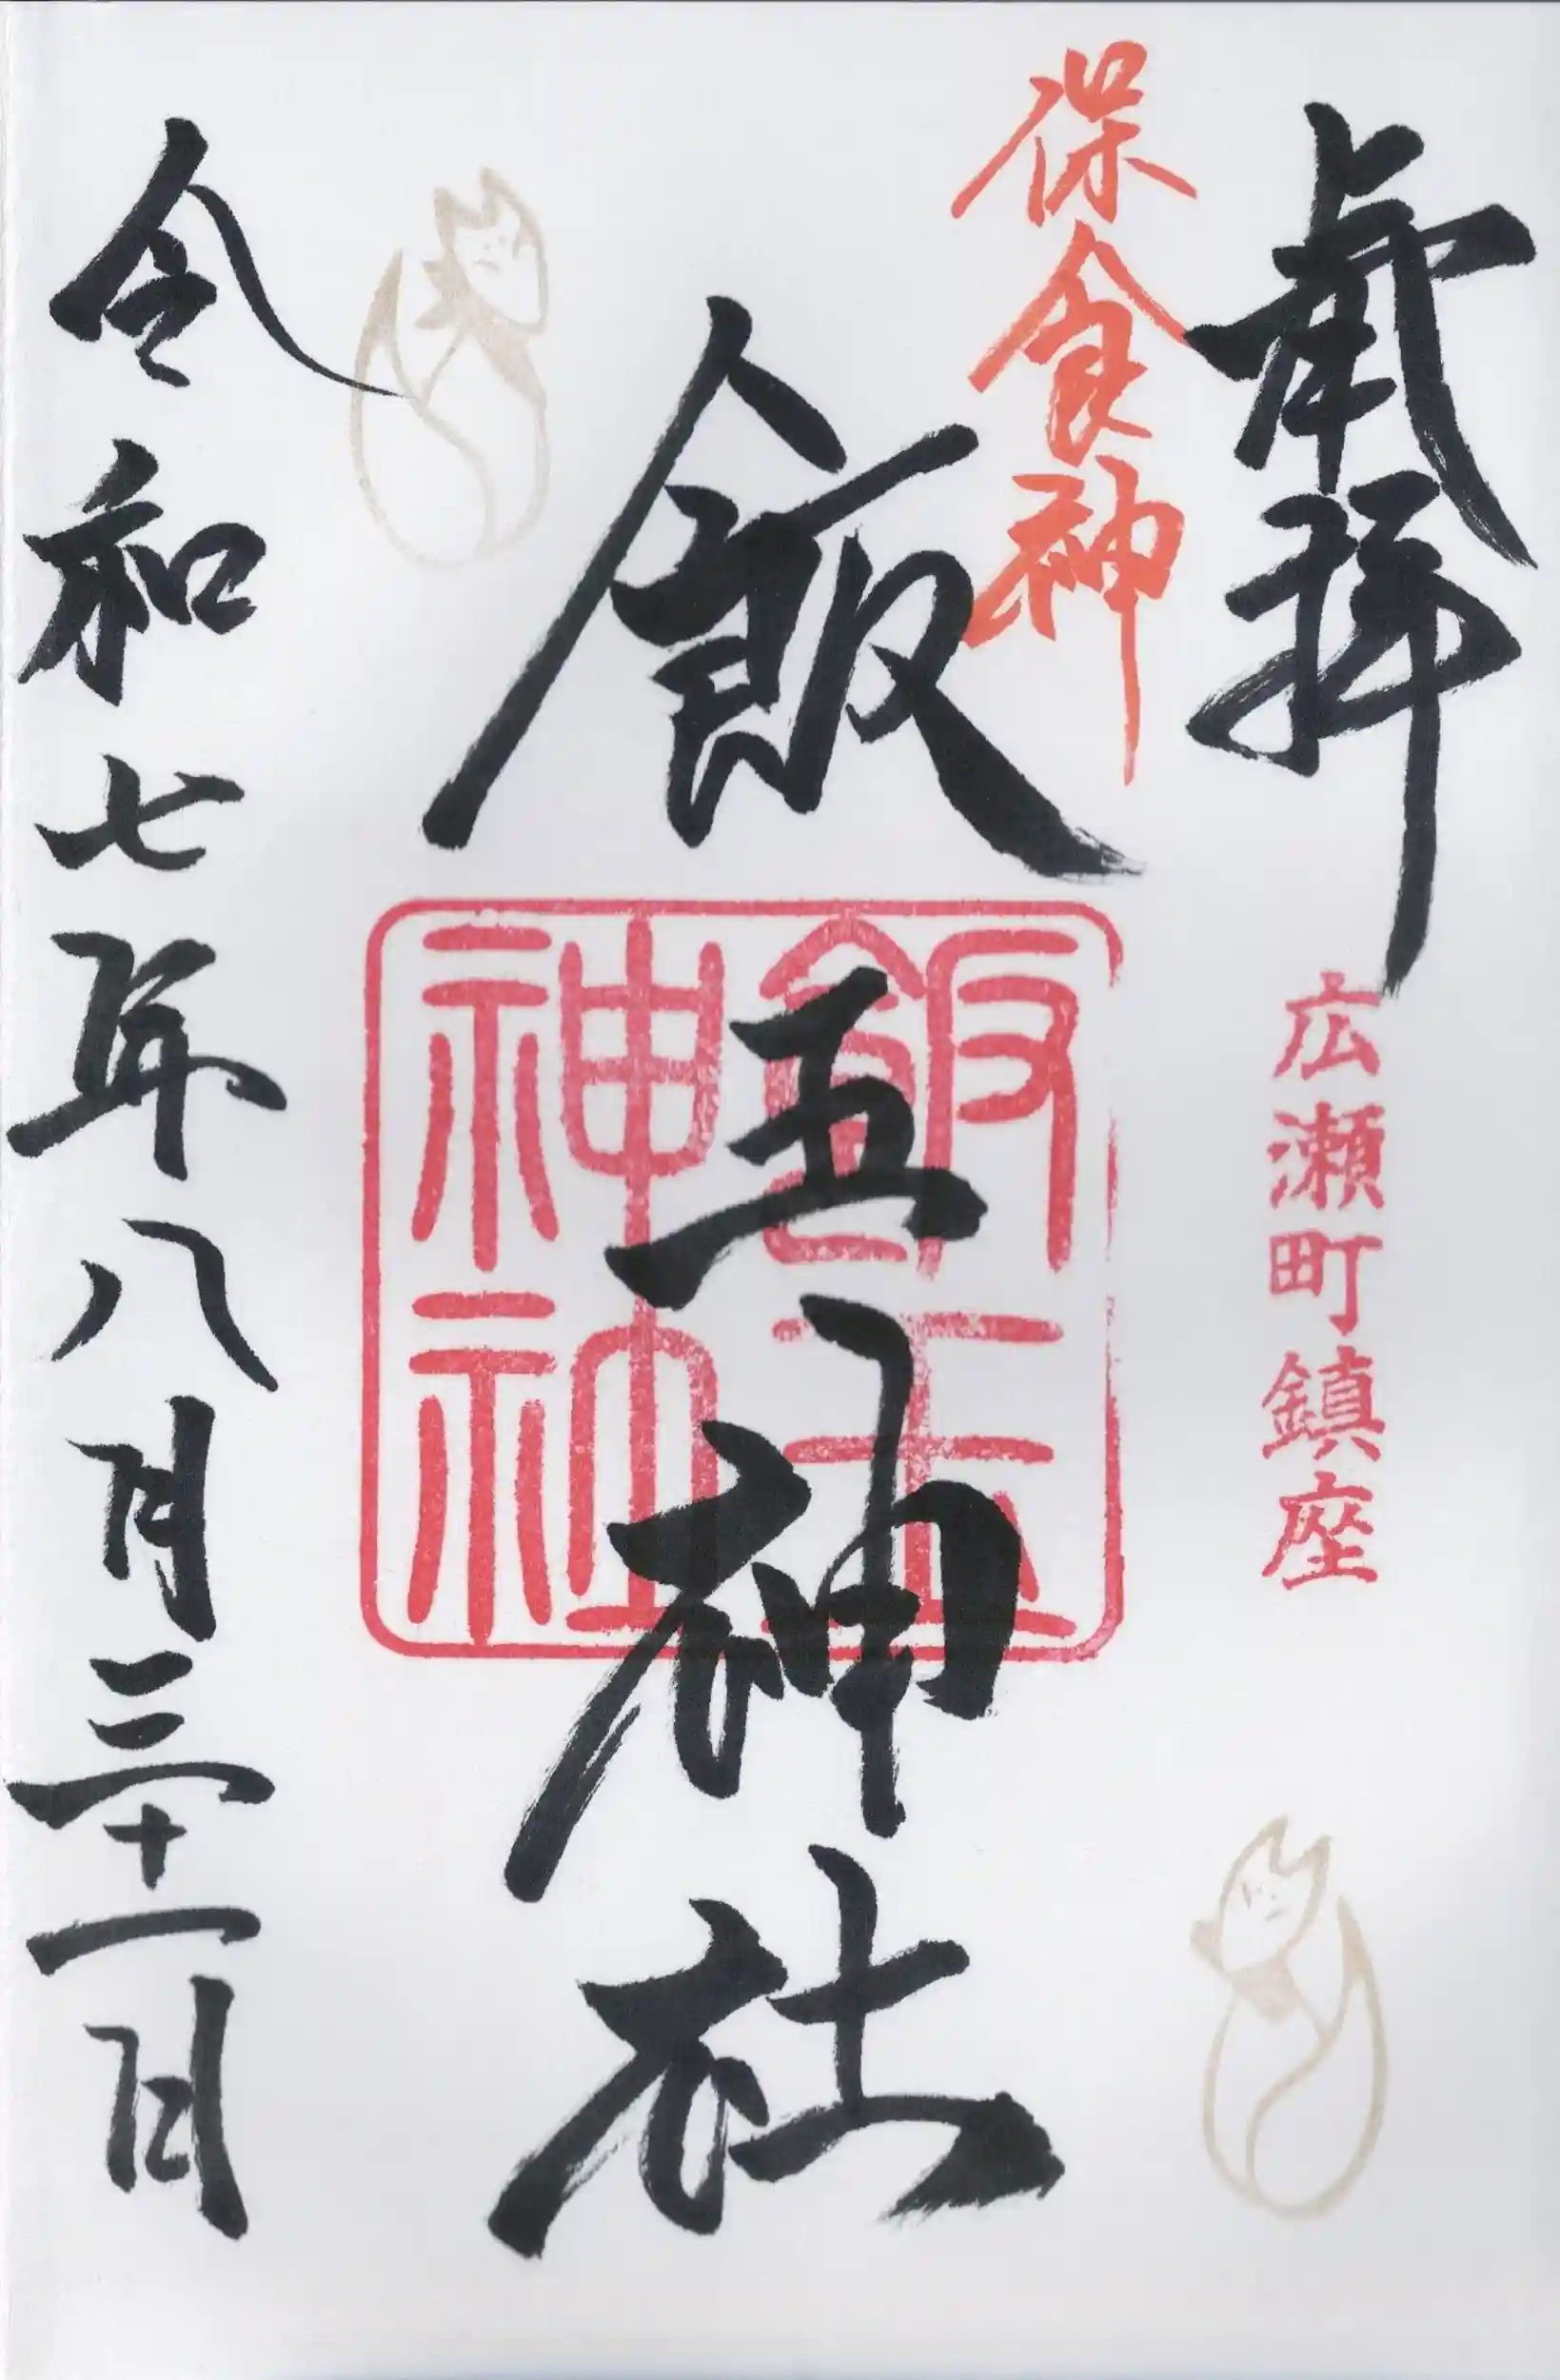 奉拝
広瀬町鎮座
保食神
飯玉神社
飯玉
神社
令和七年八月三十一日